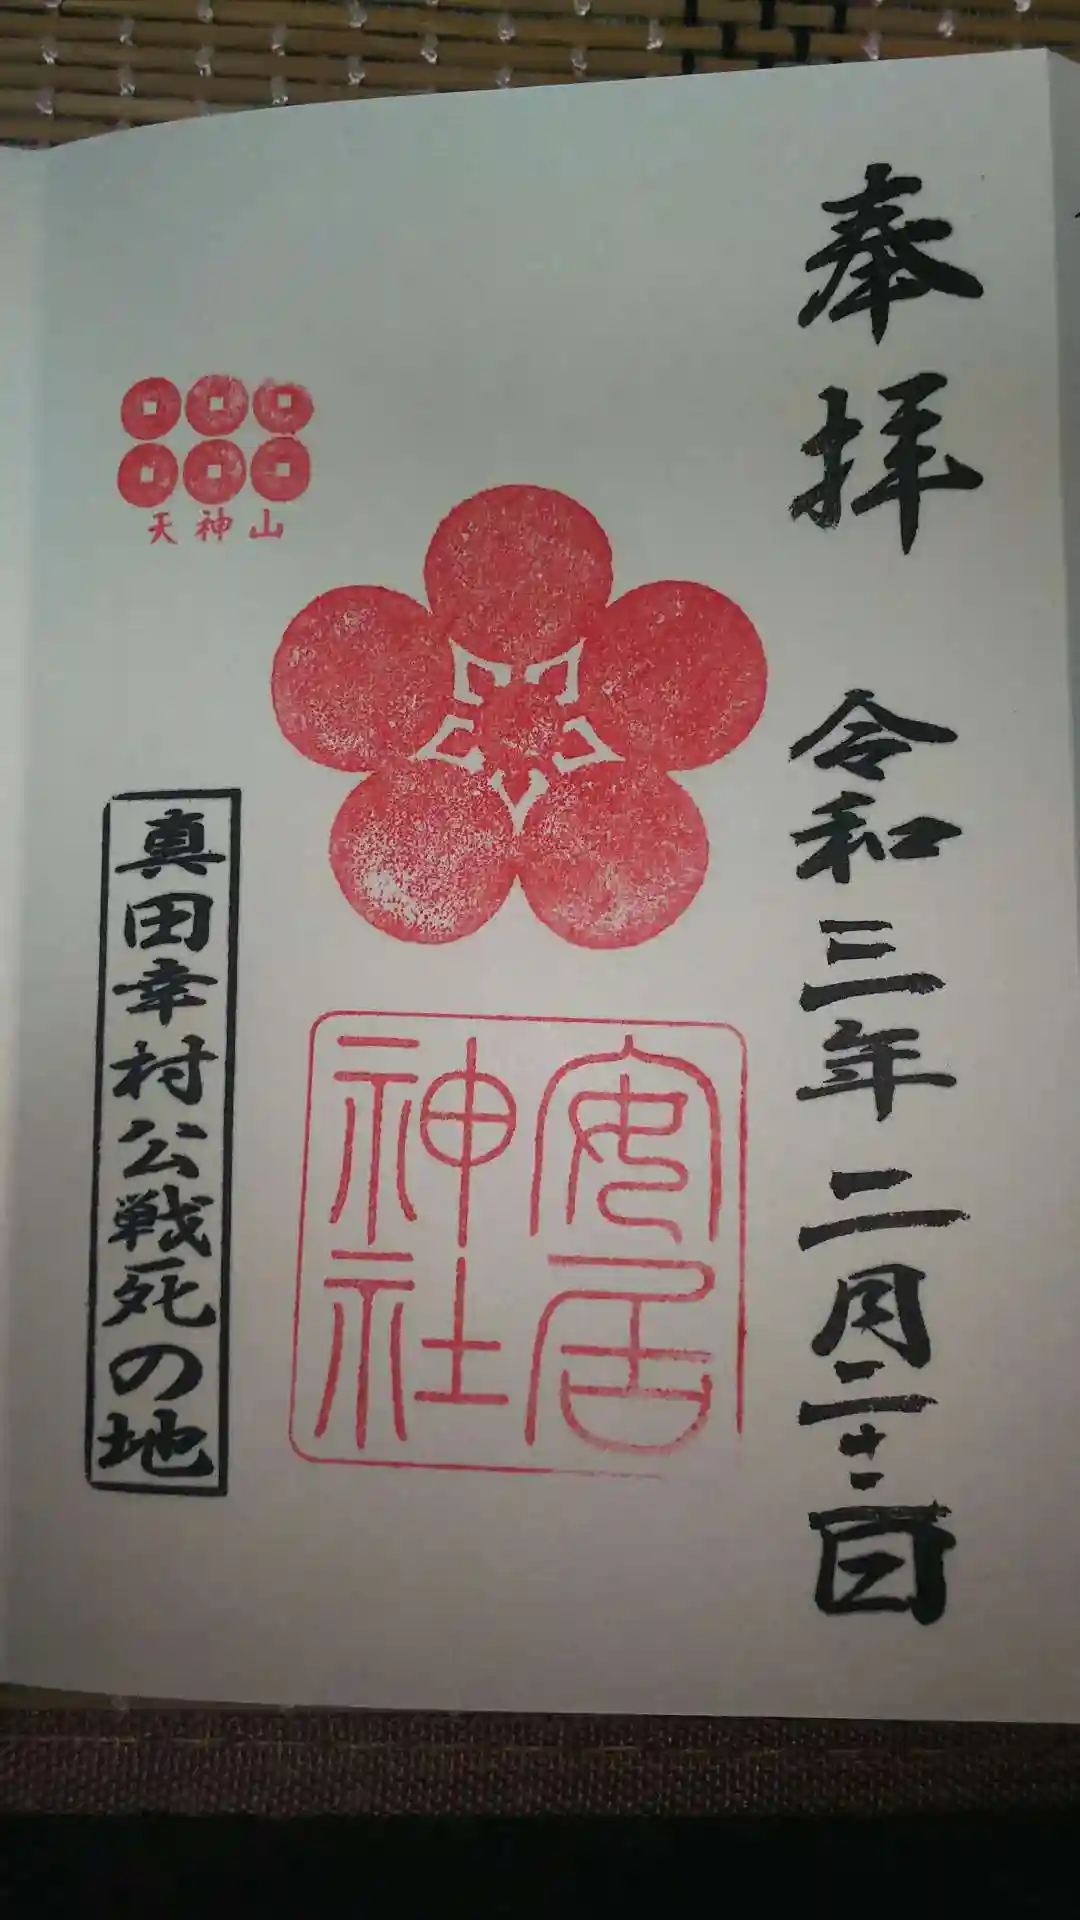 奉拝
令和三年二月二十二日
安居
神社
天神山
真田幸村公戦死の地